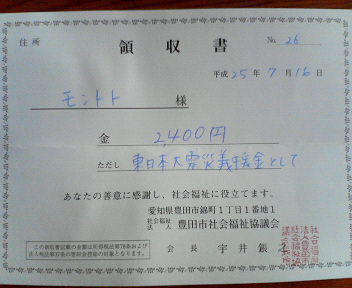 領収書
住所
No. 26
平成25年7月16日
モントト 様
金 2,400円
ただし 東日本大震災義援金として
あなたの善意に感謝し、社会福祉に役立てます。
愛知県豊田市錦町1丁目1番地1
社会福祉法人 豊田市社会福祉協議会
会長 宇井鋹之
この領収書記載の金額は所得税法第78条および
法人税法第37条の寄附金控除の対象となります。